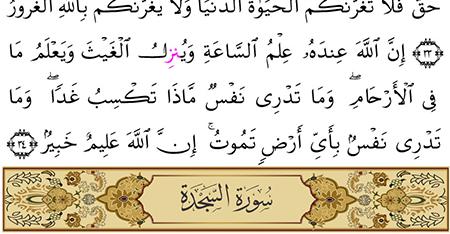 حَقٌّ فَلَا تَغُرَّنَّكُمُ الْحَيَوٰةُ الدُّنْيَا وَلَا يَغُرَّنَّكُم بِاللَّهِ الْغَرُورُ
۝٣٣ إِنَّ اللَّهَ عِندَهُۥ عِلْمُ السَّاعَةِ وَيُنزِلُ الْغَيْثَ وَيَعْلَمُ مَا
فِى الْأَرْحَامِۖ وَمَا تَدْرِى نَفْسٌ مَّاذَا تَكْسِبُ غَدًاۖ وَمَا
تَدْرِى نَفْسٌۢ بِأَىِّ أَرْضٍ تَمُوتُۚ إِنَّ اللَّهَ عَلِيمٌ خَبِيرٌۢ ۝٣٤
سُورَةُ السَّجْدَةِ